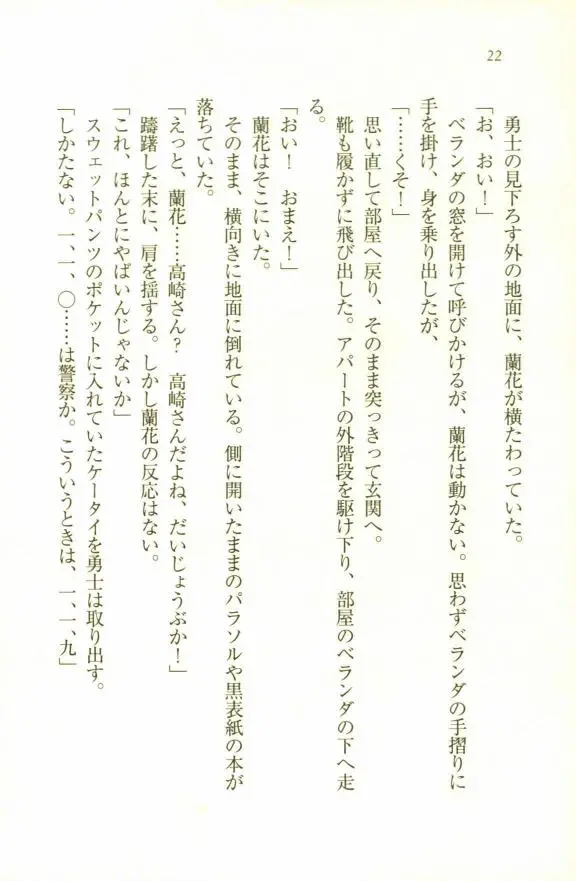 22
勇士の見下ろす外の地面に、蘭花が横たわっていた。
「お、おい!」
ベランダの窓を開けて呼びかけるが、蘭花は動かない。思わずベランダの手摺りに
手を掛け、身を乗り出したが、
「……くそ!」
思い直して部屋へ戻り、そのまま突っきって玄関へ。
靴も履かずに飛び出した。アパートの外階段を駆け下り、部屋のベランダの下へ走
る。
「おい! おまえ!」
蘭花はそこにいた。
そのまま、横向きに地面に倒れている。側に開いたままのパラソルや黒表紙の本が
落ちていた。
「えっと、蘭花……高崎さん? 高崎さんだよね、だいじょうぶか!」
躊躇した末に、肩を揺する。しかし蘭花の反応はない。
「これ、ほんとにやばいんじゃないか」
スウェットパンツのポケットに入れていたケータイを勇士は取り出す。
「しかたない。一、一、〇……は警察か。こういうときは、一、一、九」